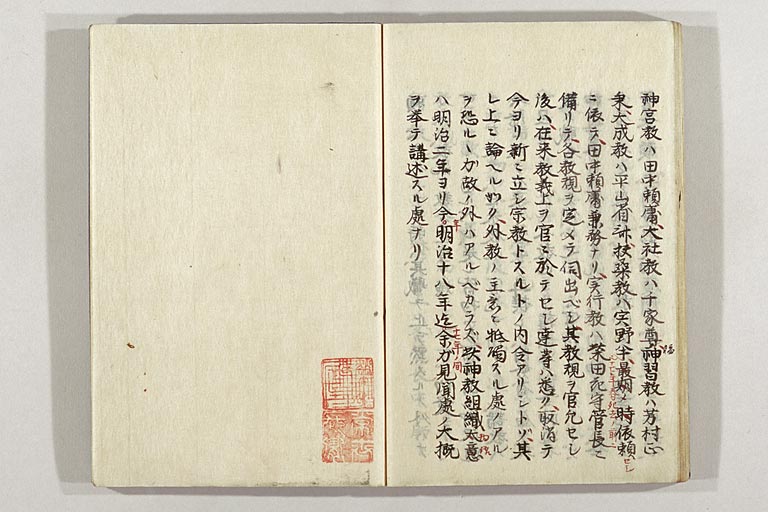 神宮教ハ田中頼庸、大社教ハ千家尊福、神習教ハ芳村正
秉、大成教ハ平山省斎、扶桑教ハ宍野半、最期ノ時依頼セシ
ニ依テ、田中頼庸兼務ナリ、実行教ハ柴田花守管長ニ
備リテ、各教規ヲ定メテ伺出ベシ、其教規ヲ官允セシ
後ハ、在来教義上ヲ官ニ於テセシ達等ハ悉ク取消テ
今ヨリ新ニ立シ宗教トスルトノ内令アリシトゾ、其
レ上ニ論ヘル如ク、外教ノ主意ニ牴触スル処ノアル
ヲ恐ルヽカ故ノ外ハアルベカラズ、故神教組織大意
ハ明治二年ヨリ今年明治十八年迄余ガ見聞処ノ大概
ヲ挙テ講述スル處ナリ